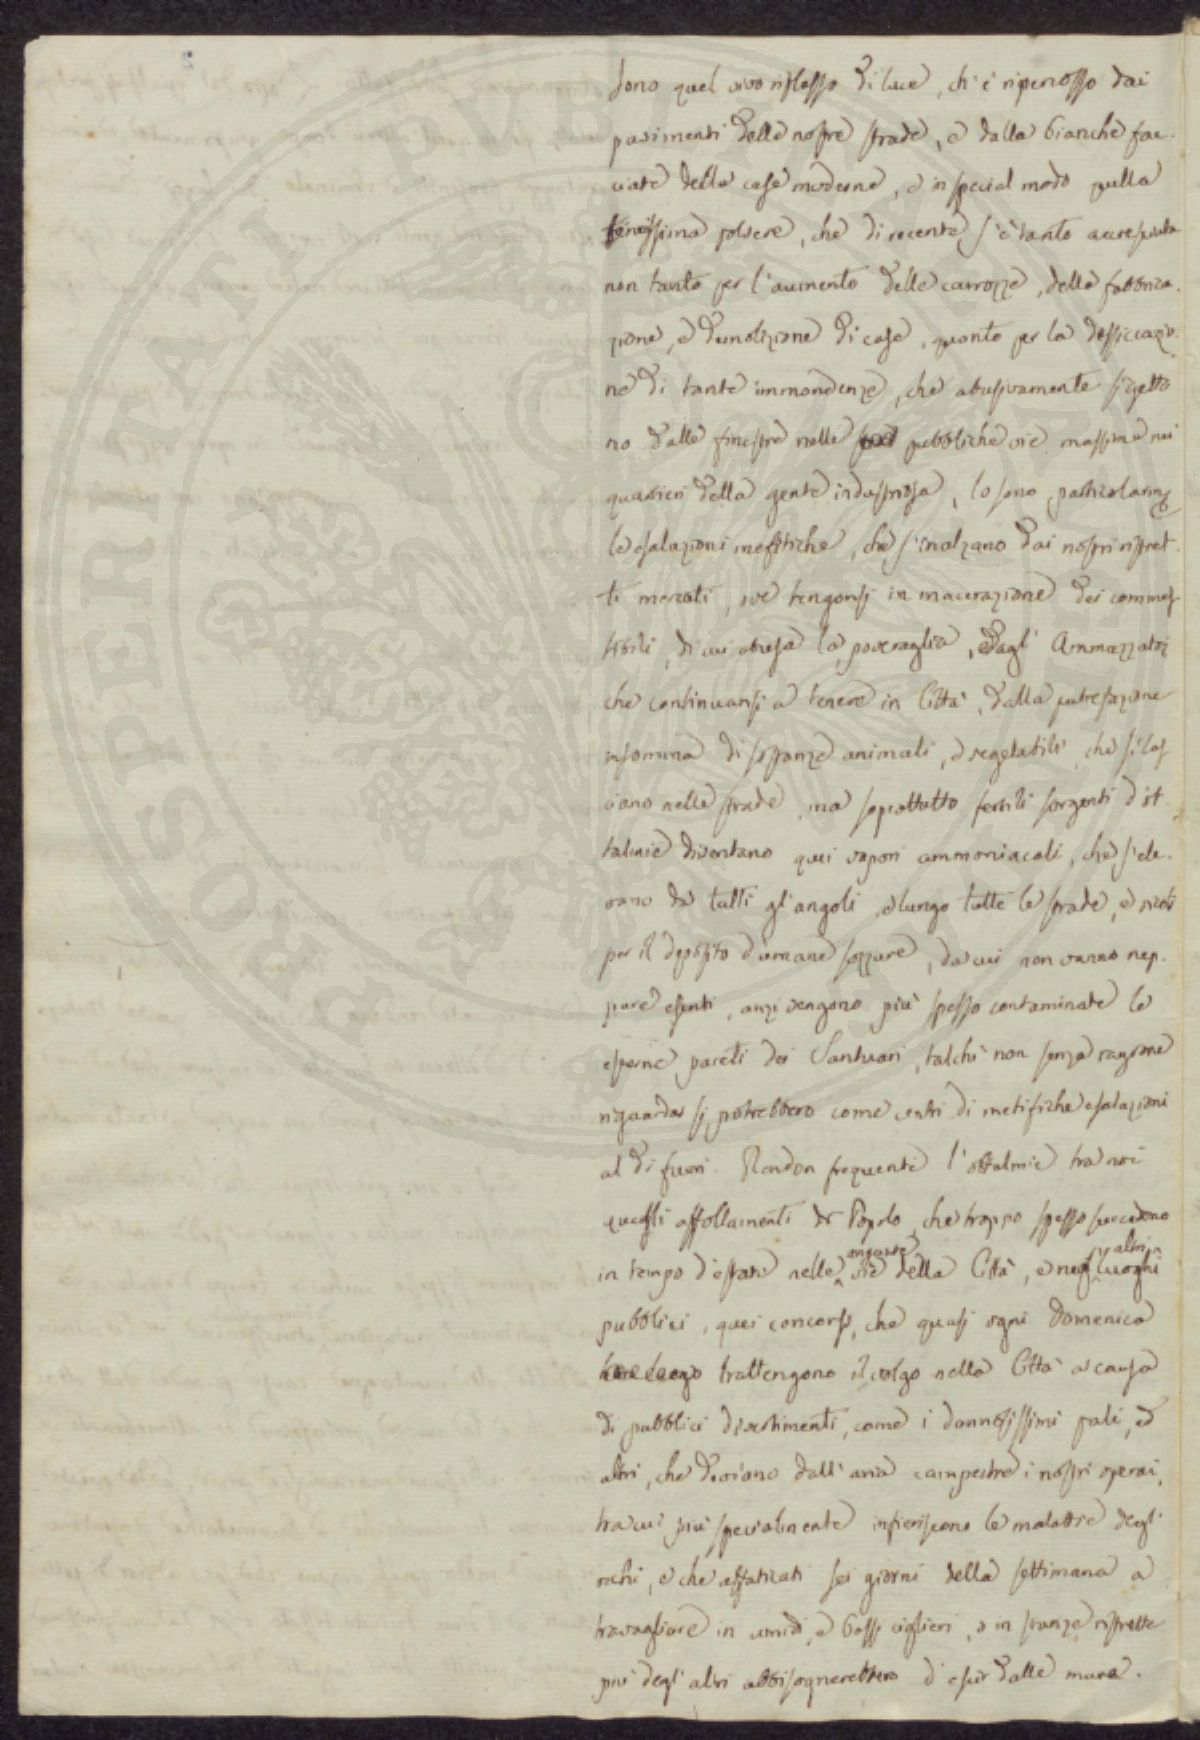 sono quel vivo riflesso di luce, ch'è ripercosso dai
pavimenti delle nostre strade, e dalla bianche fac-
ciate delle case moderne, e in special modo sulla
finissima polvere, che di recente s'è tanto accresciuta
non tanto per l'aumento delle carrozze, della fabbrica-
zione, e demolizione di case, quanto per la dissiccazio-
ne di tante immondenze, che abusivamente si getta
no dalle finestre nelle pubbliche vie massime nei
quartieri della gente industriosa, lo sono particolarm.
le esalazioni mefitiche, che s'inalzano dai nostri ristret-
ti mercati, ove tengonsi in macerazione dei commes-
tibili, di cui abusa la poveraglia, e dagl' Ammazzatoj
che continuansi a tenere in Città, dalla putrefazione
insomma di sostanze animali, e vegetabili, che si las
ciano nelle strade, ma soprattutto fertili sorgenti d'ot
talmie diventano quei vapori ammoniacali, che s'ele-
vano da tutti gl'angoli e lungo tutte le strade, e vicoli
per il deposito d'umane sozzure, da cui non vanno nep-
pure esenti, anzi vengono più spesso contaminate le
esterne pareti dei Santuari, talchè non senza ragione
riguardar si potrebbero come centri di metifiche esalazioni
al di fuori. Rendon frequente l'ottalmie tra noi
quegli affollamenti di Popolo, che troppo spesso succedono
in tempo d'estate nelle anguste vie della Città, e negl'altri luoghi
pubblici, quei concorsi, che quasi ogni Domenica
trattengono il volgo nella Città a causa
di pubblici divertimenti, come i dannosissimi palj, ed
altri, che deviano dall'aria campestre i nostri operai,
tra cui più specialmente infieriscono le malattie degli
occhi, e che affaticati sei giorni della settimana a
travagliare in umidi, e bassi ciglieri, o in stanze ristrette
più degl'altri abbisognerebbero d'escir dalle mura.